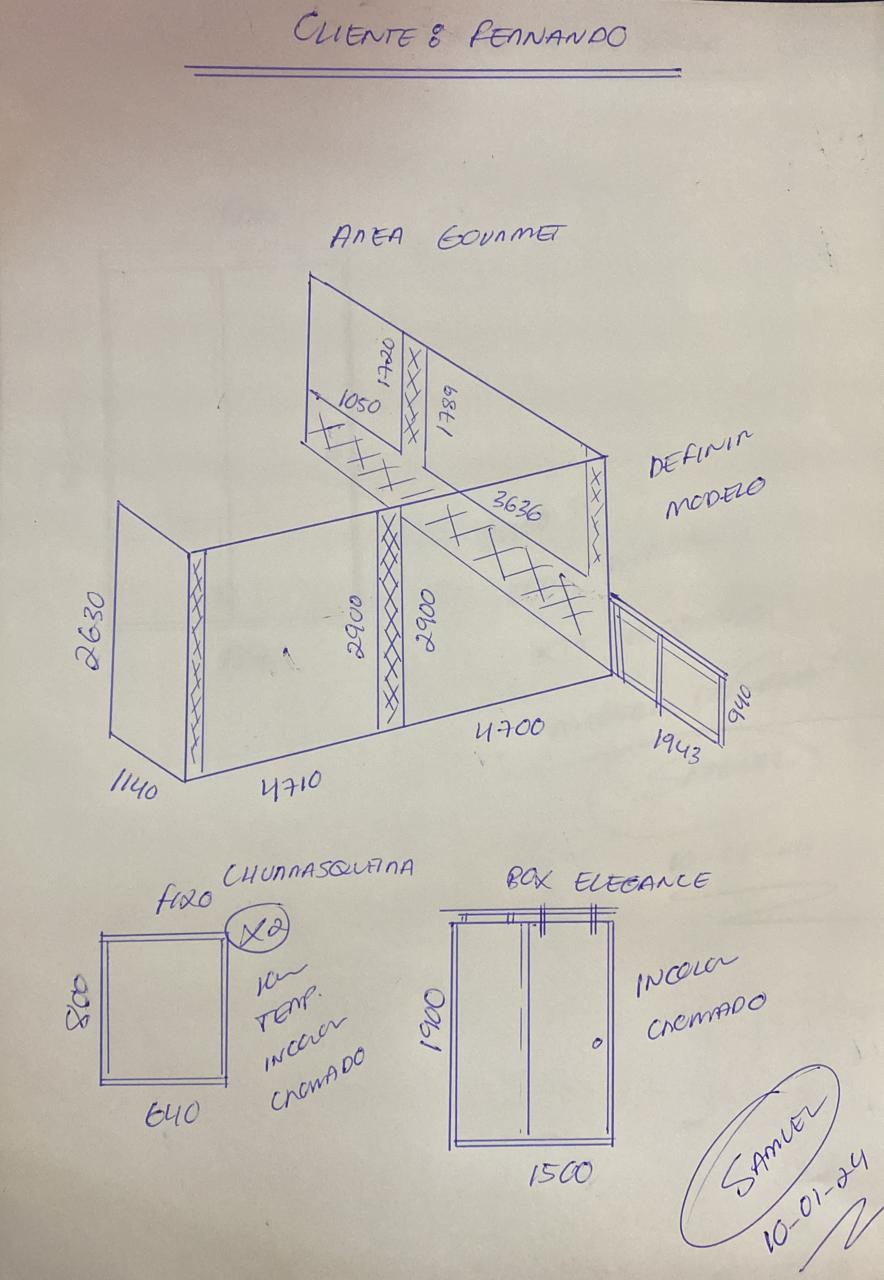 CLIENTE: FERNANDO
AREA GOURMET
1720
1050
1789
3636
DEFINIR
MODELO
2630
2900
2900
940
1943
4700
4710
1140
CHURRASQUEIRA
FIXO
X2
800
TEMP.
INCOLOR
CROMADO
640
BOX ELEGANCE
1900
INCOLOR
CROMADO
1500
SAMUEL
10-01-24